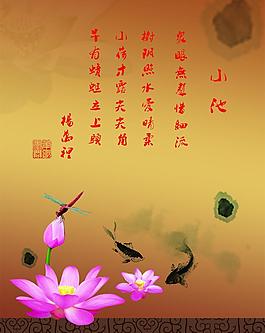 小池
泉眼無聲惜細流
樹陰照水愛晴柔
小荷才露尖尖角
早有蜻蜓立上頭
楊萬裡